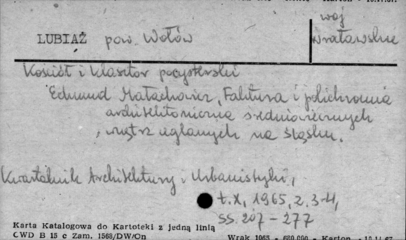 woj
LUBIĄŻ pow. Wołów wrocławskie
Kościół i klasztor pocysterski
Edmund Małachowicz, Faktura i polichromia
architektoniczna średniowiecznych
wnętrz ceglanych na Śląsku.
Kwartalnik Architektury i Urbanistyki,
t.X, 1965, z.3-4,
ss. 207-277
Karta Katalogowa do Kartoteki z jedną linią
CWD B 15 c Zam. 1568/DW/On Wrak 1065 - 680.000 - Karton